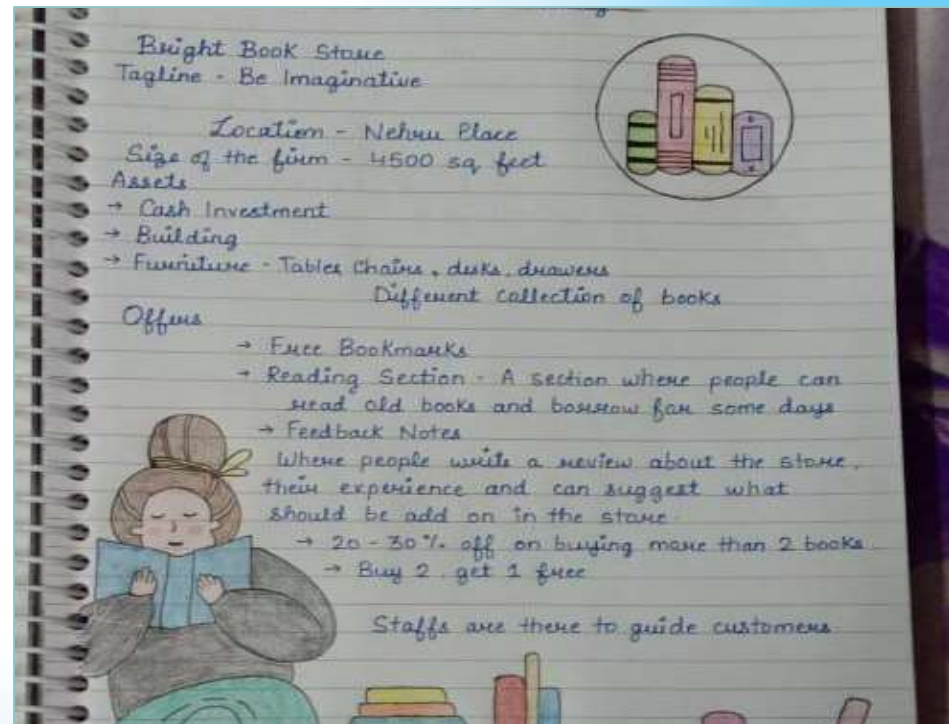 Bright Book Store
Tagline - Be Imaginative
Location - Nehru Place
Size of the firm - 4500 sq feet
Assets
→ Cash Investment
→ Building
→ Furniture - Tables Chairs, desks, drawers
Different collection of books
Offers
→ Free Bookmarks
→ Reading Section - A section where people can
read old books and borrow for some days
→ Feedback Notes
Where people write a review about the store,
their experience and can suggest what
should be add on in the store.
→ 20 - 30% off on buying more than 2 books
→ Buy 2, get 1 free
Staffs are there to guide customers.